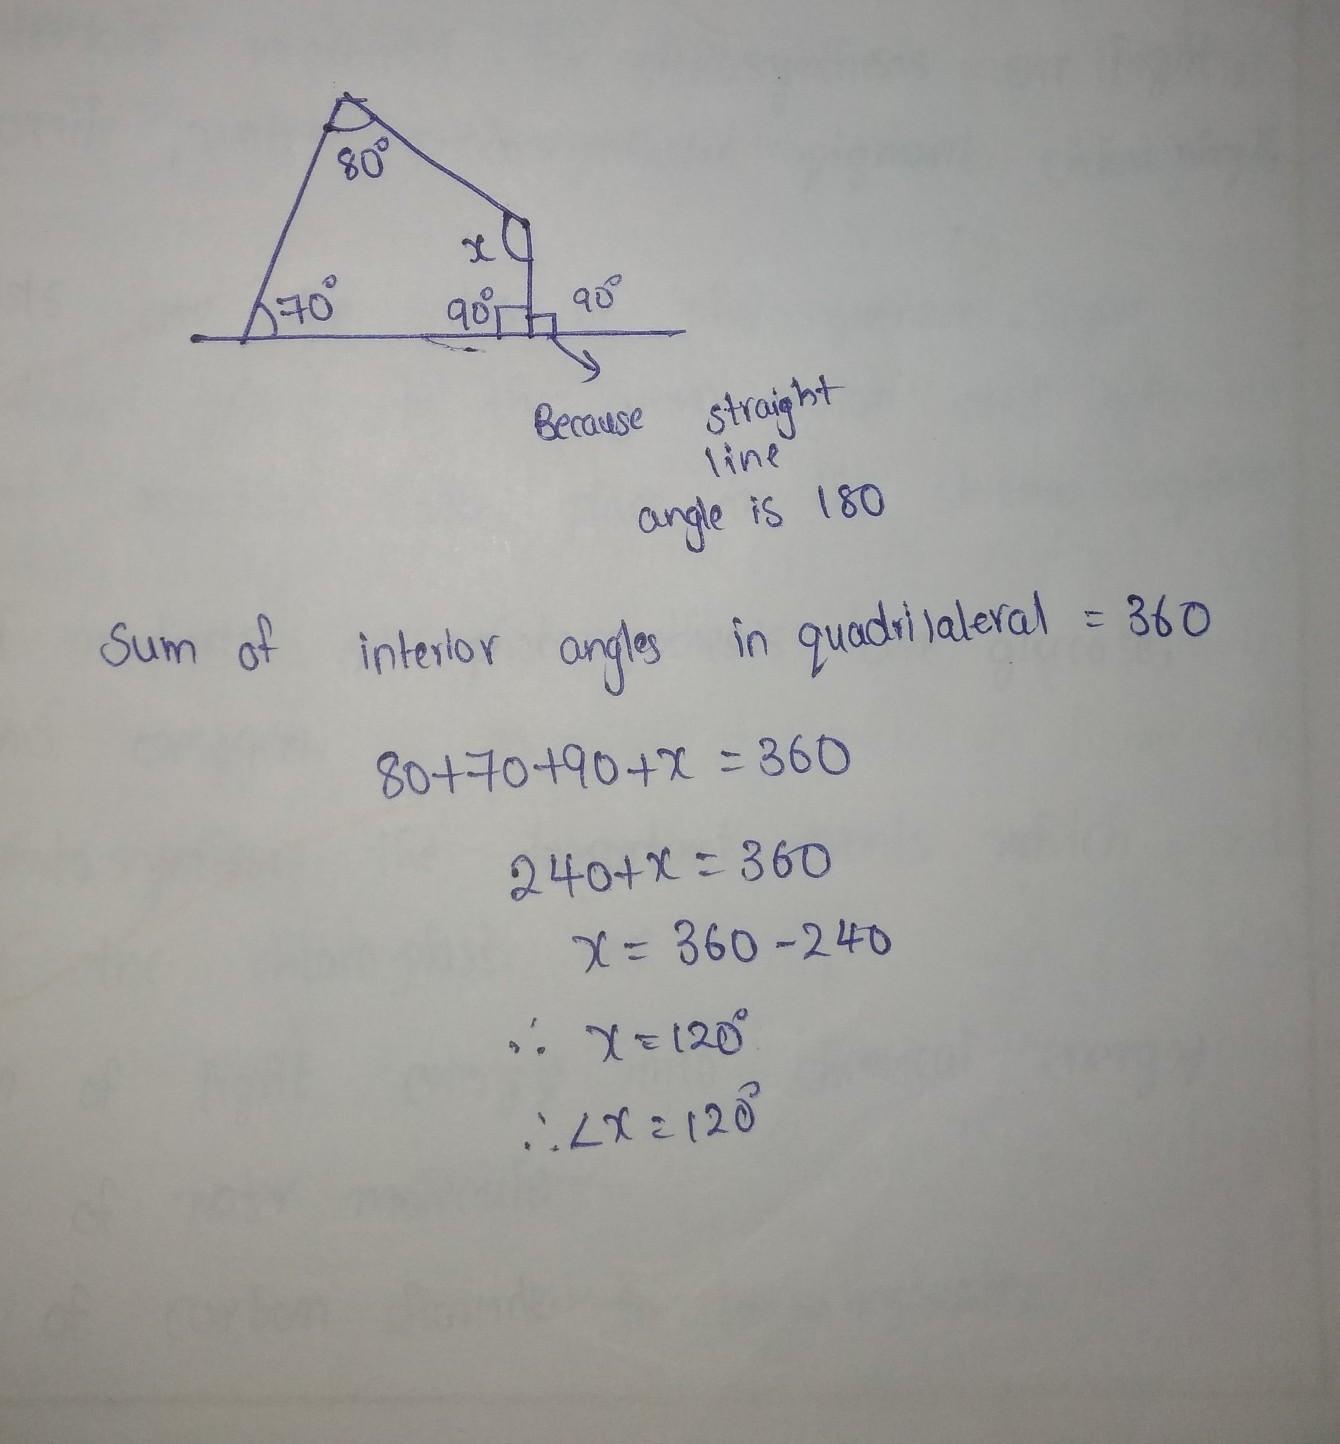 80°
x
70°
90° 90°
Because straight
line
angle is 180
Sum of interior angles in quadrilateral = 360
80+70+90+x = 360
240+x = 360
x = 360 - 240
∴ x = 120°
∴ ∠x = 120°